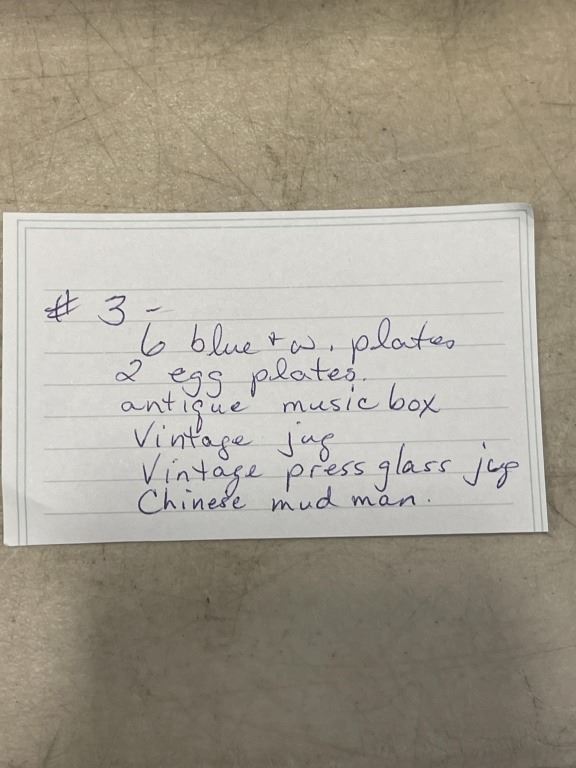 # 3 -
6 blue + w. plates
2 egg plates.
antique music box
Vintage jug
Vintage press glass jug
Chinese mud man.